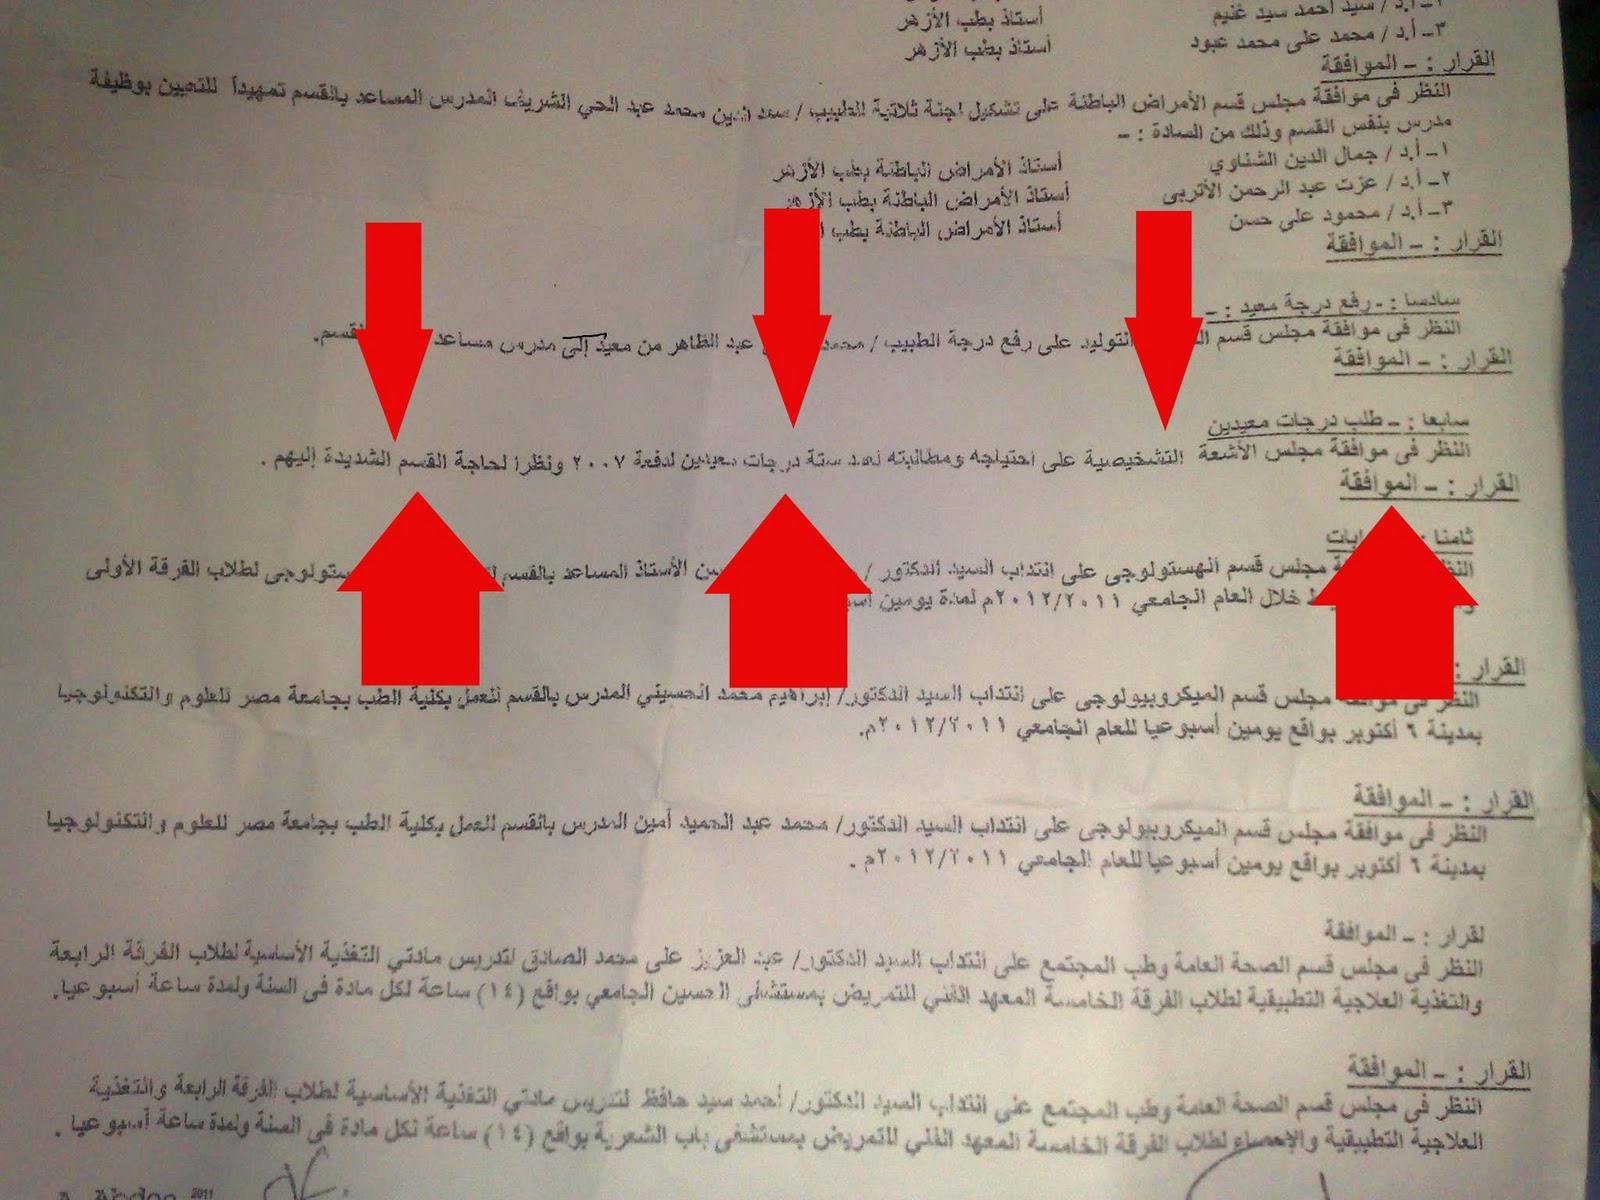 ٢ــ أ.د / سيد أحمد سيد غنيم أستاذ بطب الأزهر
٣ــ أ.د / محمد على محمد عبود أستاذ بطب الأزهر
القرار : ــ الموافقة
النظر فى موافقة مجلس قسم الأمراض الباطنة على تشكيل لجنة ثلاثية للطبيب / سعد الدين محمد عبد الحي الشريف المدرس المساعد بالقسم تمهيداً للتعيين بوظيفة
مدرس بنفس القسم وذلك من السادة : ــ
١ــ أ.د / جمال الدين الشناوي أستاذ الأمراض الباطنة بطب الأزهر
٢ــ أ.د / عزت عبد الرحمن الأتربى أستاذ الأمراض الباطنة بطب الأزهر
٣ــ أ.د / محمود على حسن أستاذ الأمراض الباطنة بطب
القرار : ــ الموافقة
سادسا : ــ رفع درجة معيد : ــ
النظر فى موافقة مجلس قسم التوليد على رفع درجة الطبيب / محمد عبد الظاهر من معيد إلى مدرس مساعد
القرار : ــ الموافقة
سابعا : ــ طلب درجات معيدين
النظر فى موافقة مجلس الأشعة التشخيصية على احتياجه ومطالبته لعدد ستة درجات معيدين لدفعة ٢٠٠٧ ونظرا لحاجة القسم الشديدة إليهم .
القرار : ــ الموافقة
ثامنا :
مجلس قسم الهستولوجى على انتداب السيد الدكتور / الأستاذ المساعد بالقسم لطلاب الفرقة الأولى
خلال العام الجامعي ٢٠١٢/٢٠١١م لمدة يومين
القرار :
النظر فى موافقة مجلس قسم الميكروبيولوجى على انتداب السيد الدكتور/ إبراهيم محمد الحسيني المدرس بالقسم للعمل بكلية الطب بجامعة مصر للعلوم والتكنولوجيا
بمدينة ٦ أكتوبر بواقع يومين أسبوعيا للعام الجامعي ٢٠١٢/٢٠١١م.
القرار : ــ الموافقة
النظر فى موافقة مجلس قسم الميكروبيولوجى على انتداب السيد الدكتور/ محمد عبد الحميد أمين المدرس بالقسم للعمل بكلية الطب بجامعة مصر للعلوم والتكنولوجيا
بمدينة ٦ أكتوبر بواقع يومين أسبوعيا للعام الجامعي ٢٠١٢/٢٠١١م .
لقرار : ــ الموافقة
النظر فى مجلس قسم الصحة العامة وطب المجتمع على انتداب السيد الدكتور/ عبد العزيز على محمد الصادق لتدريس مادتي التغذية الأساسية لطلاب الفرقة الرابعة
والتغذية العلاجية التطبيقية لطلاب الفرقة الخامسة المعهد الفني للتمريض بمستشفى الحسين الجامعي بواقع (١٤) ساعة لكل مادة فى السنة ولمدة ساعة أسبوعيا.
القرار : ــ الموافقة
النظر فى مجلس قسم الصحة العامة وطب المجتمع على انتداب السيد الدكتور/ أحمد سيد حافظ لتدريس مادتي التغذية الأساسية لطلاب الفرقة الرابعة والتغذية
العلاجية التطبيقية والإحصاء لطلاب الفرقة الخامسة المعهد الفني للتمريض بمستشفى باب الشعرية بواقع (١٤) ساعة لكل مادة فى السنة ولمدة ساعة أسبوعيا .
2011